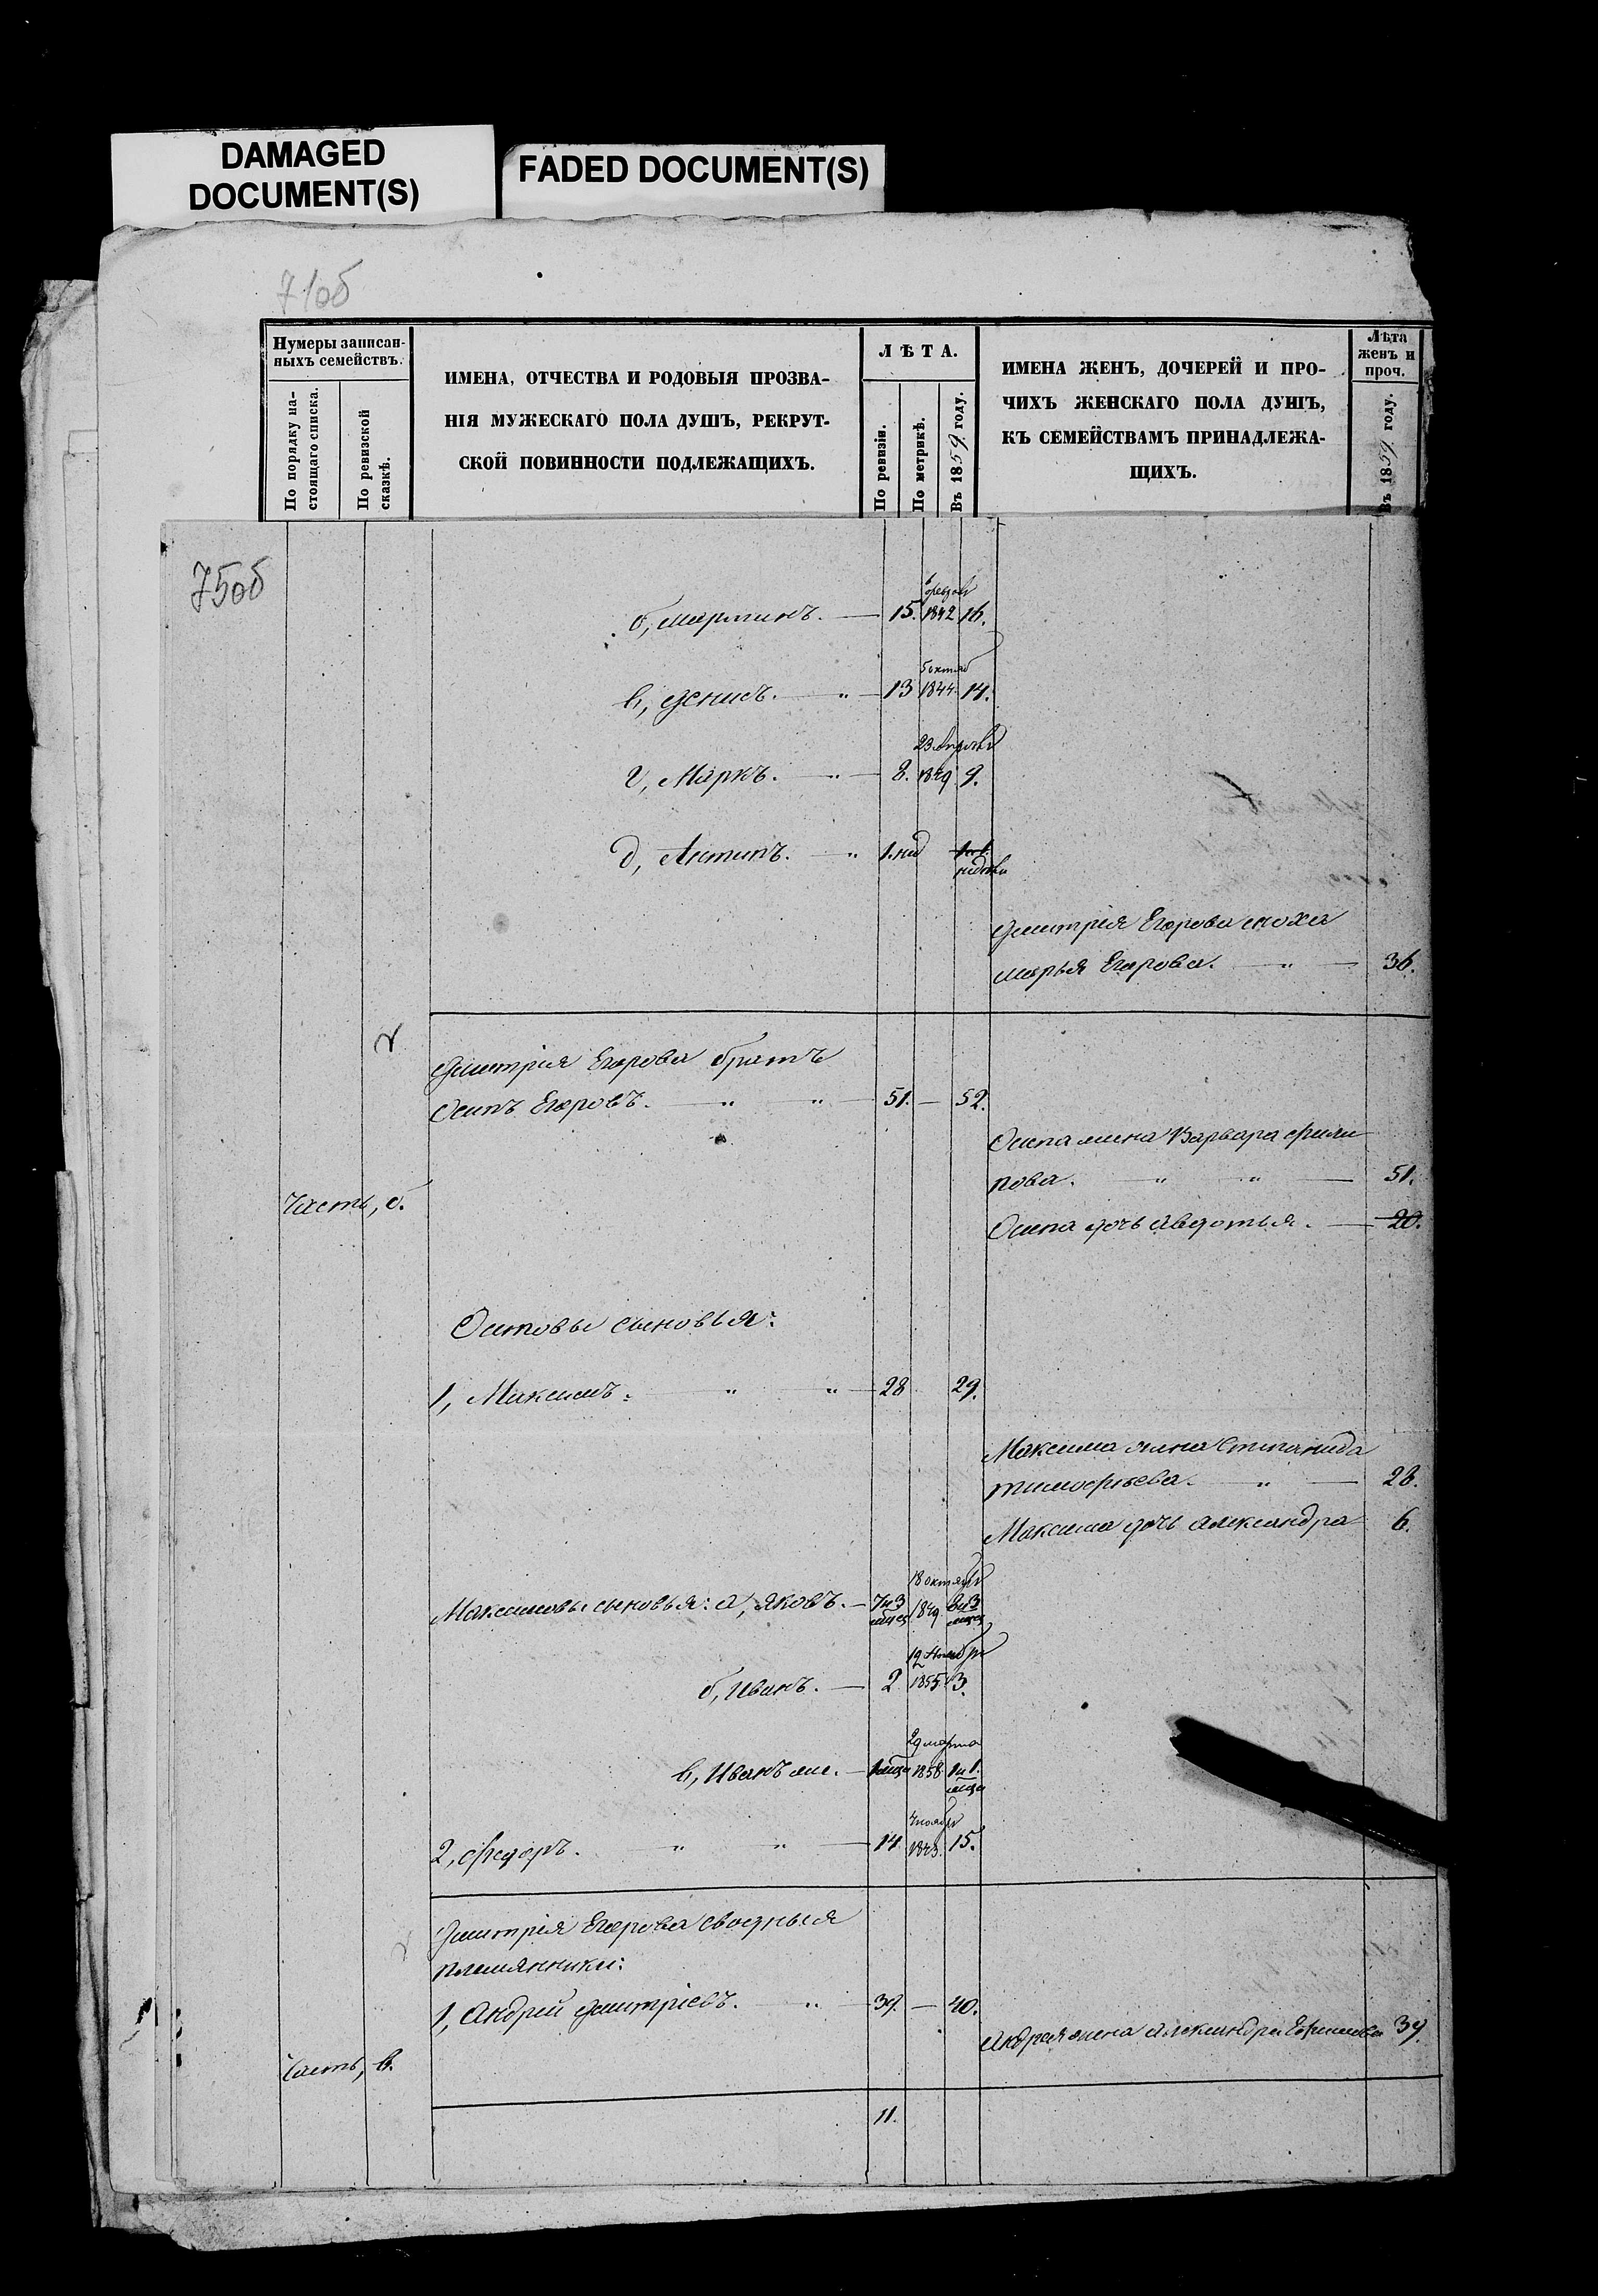 DAMAGED
DOCUMENT(S)
FADED DOCUMENT(S)
71об
Нумеры записан-
ныхъ семействъ.
По порядку на-
стоящаго списка.
По ревизской
сказкѣ.
ИМЕНА, ОТЧЕСТВА И РОДОВЫЯ ПРОЗВА-
НІЯ МУЖЕСКАГО ПОЛА ДУШЪ, РЕКРУТ-
СКОЙ ПОВИННОСТИ ПОДЛЕЖАЩИХЪ.
ЛѢТА.
По ревизіи.
По метрикѣ.
Въ 1859 году.
ИМЕНА ЖЕНЪ, ДОЧЕРЕЙ И ПРО-
ЧИХЪ ЖЕНСКАГО ПОЛА ДУШЪ,
КЪ СЕМЕЙСТВАМЪ ПРИНАДЛЕЖА-
ЩИХЪ.
Лѣта
женъ и
проч.
Въ 1859 году.
75об
б, Мартинъ. 15. 1842 16.
5 октяб
в, Денисъ. 13 1844 14.
23 Апрѣля
г, Маркъ. 8. 1849 9.
д, Антипъ. 1. нед 1 и 1.
недѣли
Дмитрія Егорова сноха
Марья Егорова. 36.
Дмитрія Егорова братъ
Осипъ Егоровъ. 51. — 52.
Осипа жена Варвара Фили
пова. 51.
Часть, б.
Осипа дочь Авдотья. 20.
Осиповы сыновья:
1, Максимъ. 28 29.
Максима жена Степанида
Тимофѣева. 28.
Максима дочь Александра 6.
18 октября
Максимовы сыновья: а, Яковъ. 7 и 3 1849 8 и 3
мѣсяц мѣсяц
12 Ноября
б, Иванъ. 2 1855 3.
29 марта
в, Иванъ же. 1 мѣсяц 1858 1 и 1.
мѣсяц
7 ноября
2, Федоръ. 14 1843. 15.
Дмитрія Егорова сводныя
племянники:
1, Андрей Дмитріевъ. 39. — 40.
Андрея жена Александра Ефимова 39.
Часть, в.
11.